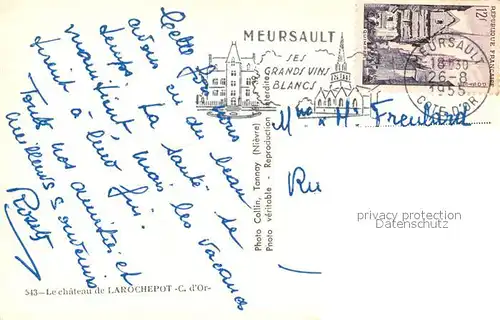 Cette fois nous
avons eu du beau
temps. La santé se
maintient, mais les vacances
tirent à leur fin.
Toutes nos amitiés et
meilleurs souvenirs
MEURSAULT
SES
GRANDS VINS
BLANCS
12F
REPUBLIQUE FRANÇAISE
MEURSAULT
18H30
26-8
1955
COTE D'OR
Mme & Mr Freulard
Ru
privacy protection
Datenschutz
Photo Collin, Tannay (Nièvre)
Photo véritable - Reproduction interdite
543—Le château de LAROCHEPOT-C. d'Or-